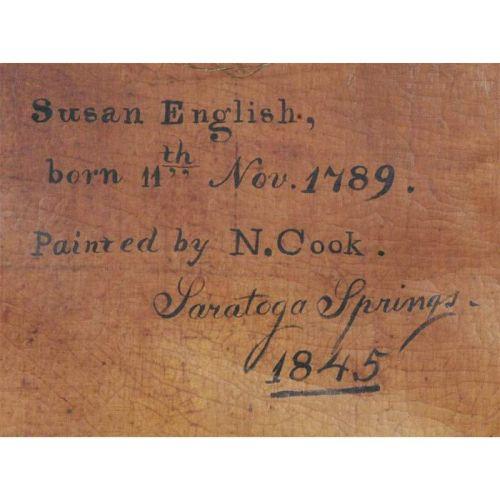 Susan English.,
born 11th Nov. 1789.
Painted by N. Cook.
Saratoga Springs.
1845